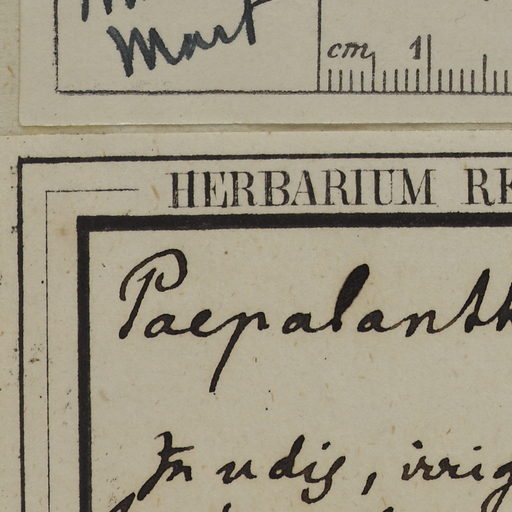 Mart
cm 1
HERBARIUM RE
Paepalanth
In udis, irrig